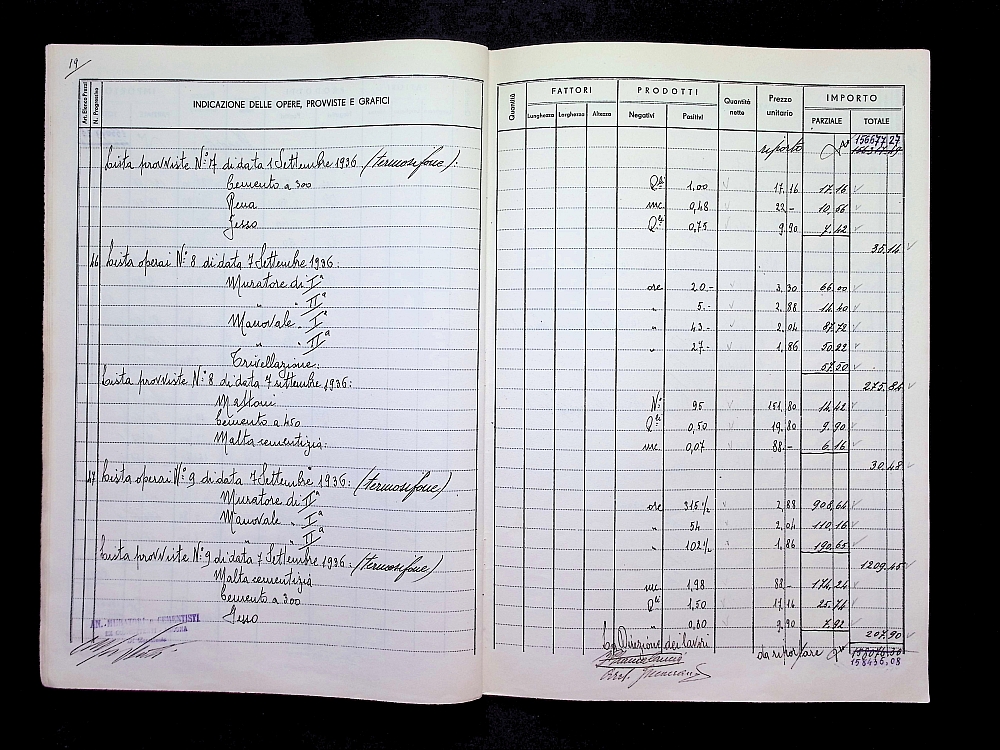 19
An. Elenco Prezzi
N. Progressivo
INDICAZIONE DELLE OPERE, PROVVISTE E GRAFICI
Quantità
FATTORI
Lunghezza Larghezza Altezza
PRODOTTI
Negativi Positivi
Quantità nette
Prezzo unitario
IMPORTO
PARZIALE TOTALE
riporto 156677,27
Lista provviste N.° 7 di data 1 Settembre 1936 (termosifone):
Cemento a 300 Q.li 1,00 17.16 17.16
Rena mc. 0,48 22- 10,56
Gesso Q.li 0,75 9.90 7.42
35.14
46 Lista operai N.° 8 di data 7 Settembre 1936:
Muratore di I.a ore 20.- 3.30 66.00
" " II.a " 5.- 2.88 14.40
Manovale " I.a " 43.- 2.04 87,72
" " II.a " 27- 1.86 50.22
Trivellazione: 57.50
275.84
Lista provviste N.° 8 di data 7 settembre 1936:
Mattoni N.° 95 151,80 14.42
Cemento a 450 Q.li 0,50 19,80 9.90
Malta cementizia: mc 0,07 88- 6.16
30.48
47 Lista operai N.° 9 di data 7 Settembre 1936: (termosifone)
Muratore di II.a ore 315½ 2,88 908,64
Manovale " I.a " 54 2,04 110,16
" " II.a " 102½ 1.86 190,65
1209.45
Lista provviste N.° 9 di data 7 Settembre 1936: (termosifone)
Malta cementizia mc 1,98 88- 174,24
Cemento a 300 Q.li 1,50 17,16 25.74
Gesso " 0,80 9.90 7.92
207.90
La Direzione dei lavori
da riportare 158436,08